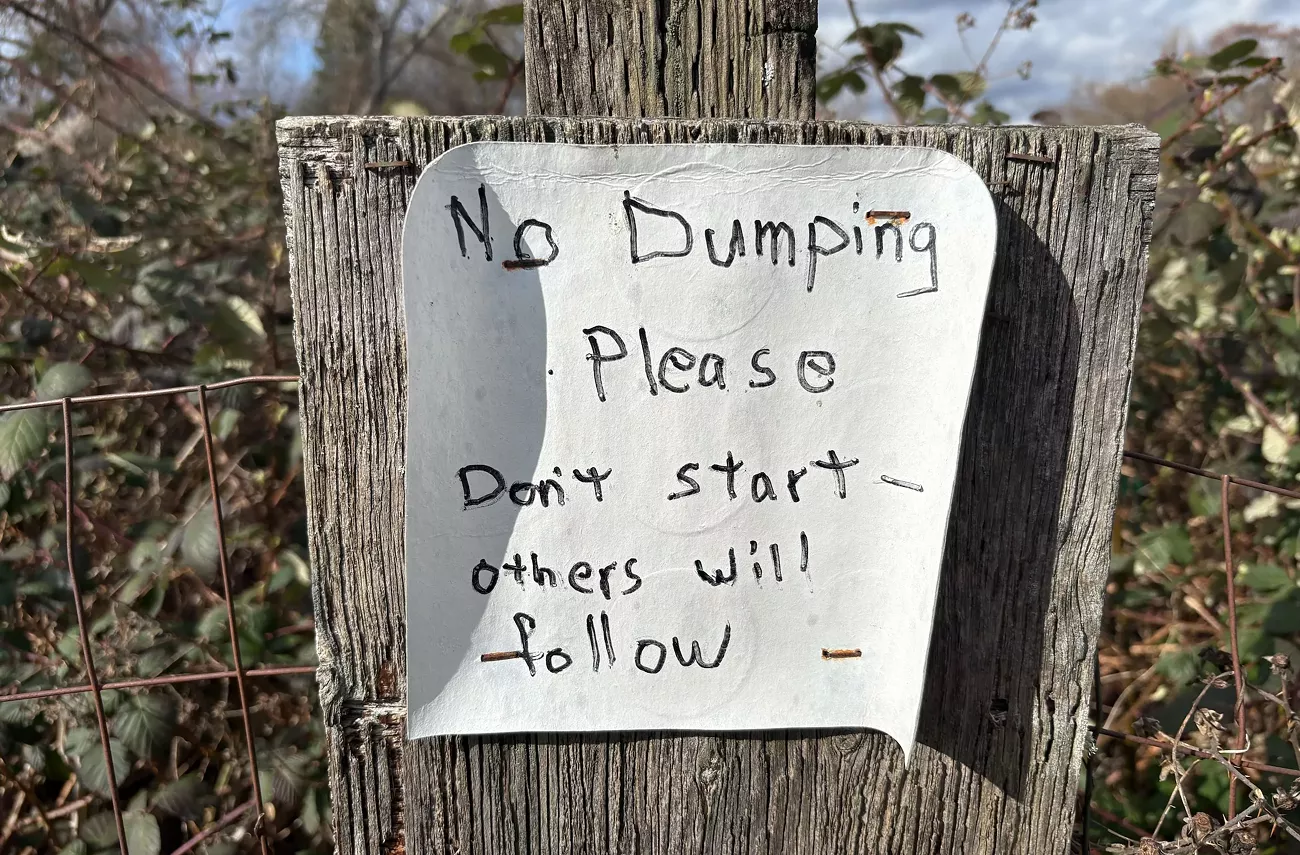 No Dumping
Please
Don't start -
others will
follow